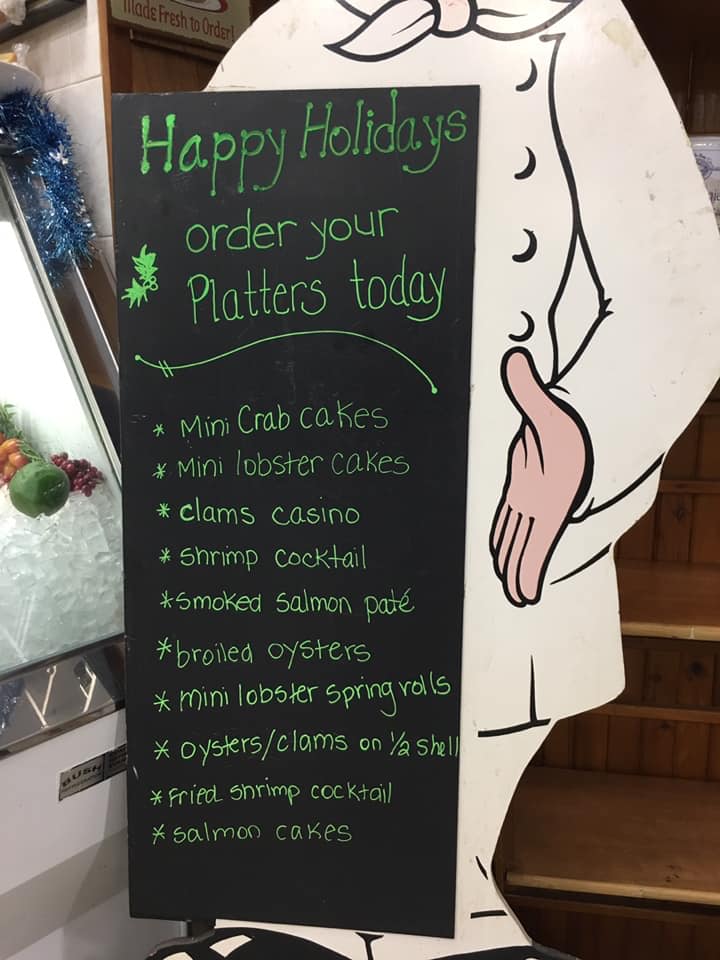 Made Fresh to Order!
Happy Holidays
order your
Platters today
* Mini Crab cakes
* Mini lobster cakes
* clams casino
* Shrimp cocktail
* Smoked Salmon paté
* broiled oysters
* mini lobster spring rolls
* oysters/clams on 1/2 shell
* Fried Shrimp cocktail
* Salmon cakes
BUSH